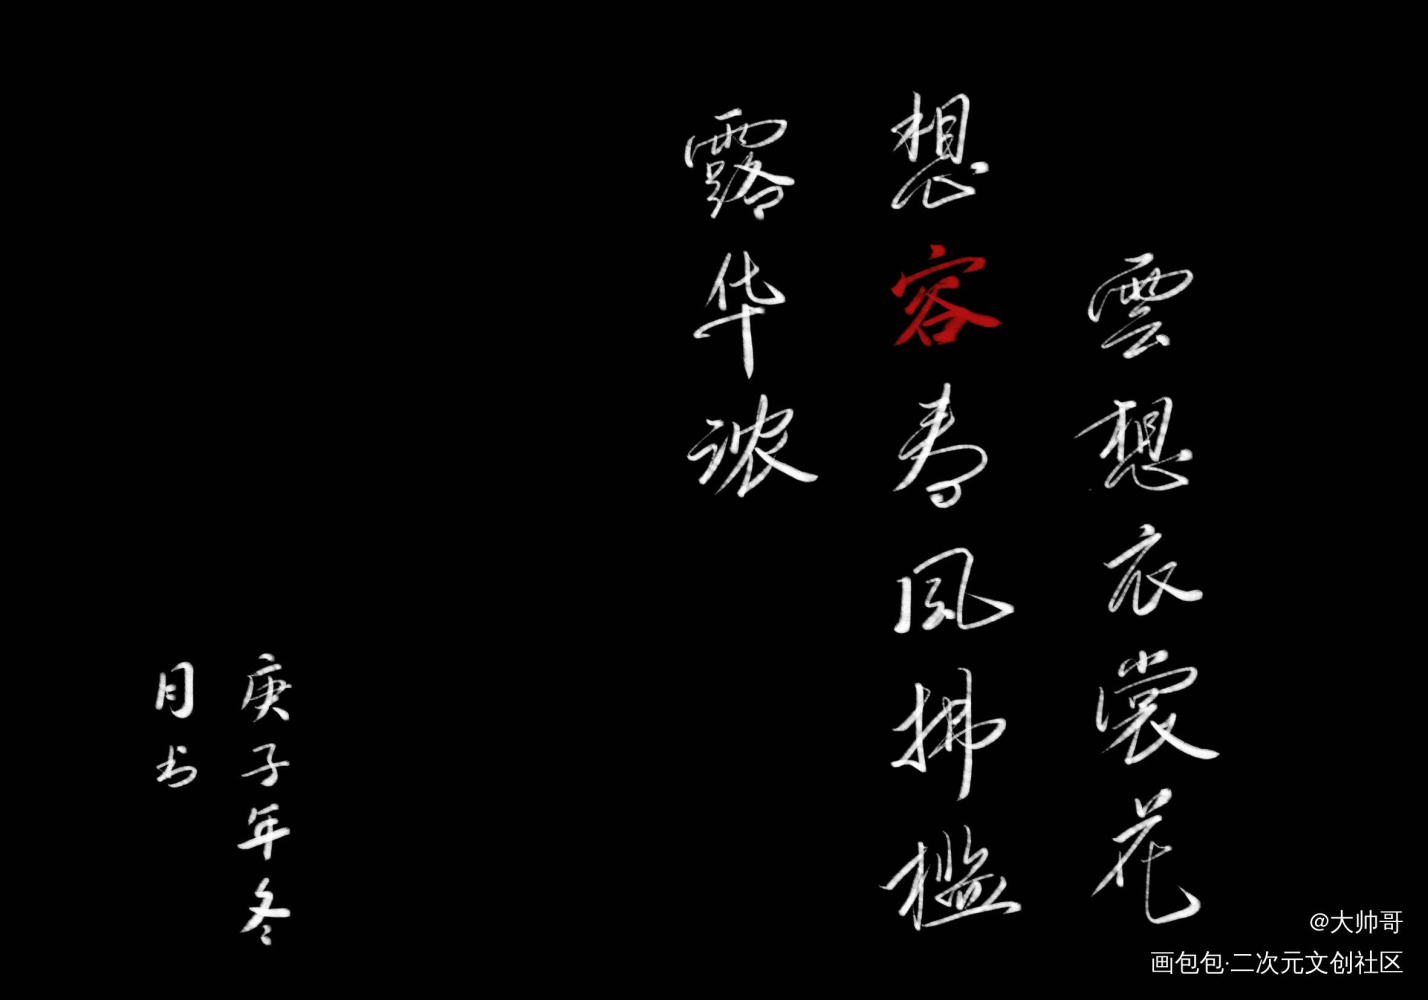 雲想衣裳花
想容春风拂槛
露华浓
庚子年冬
月书
@大帅哥
画包包·二次元文创社区